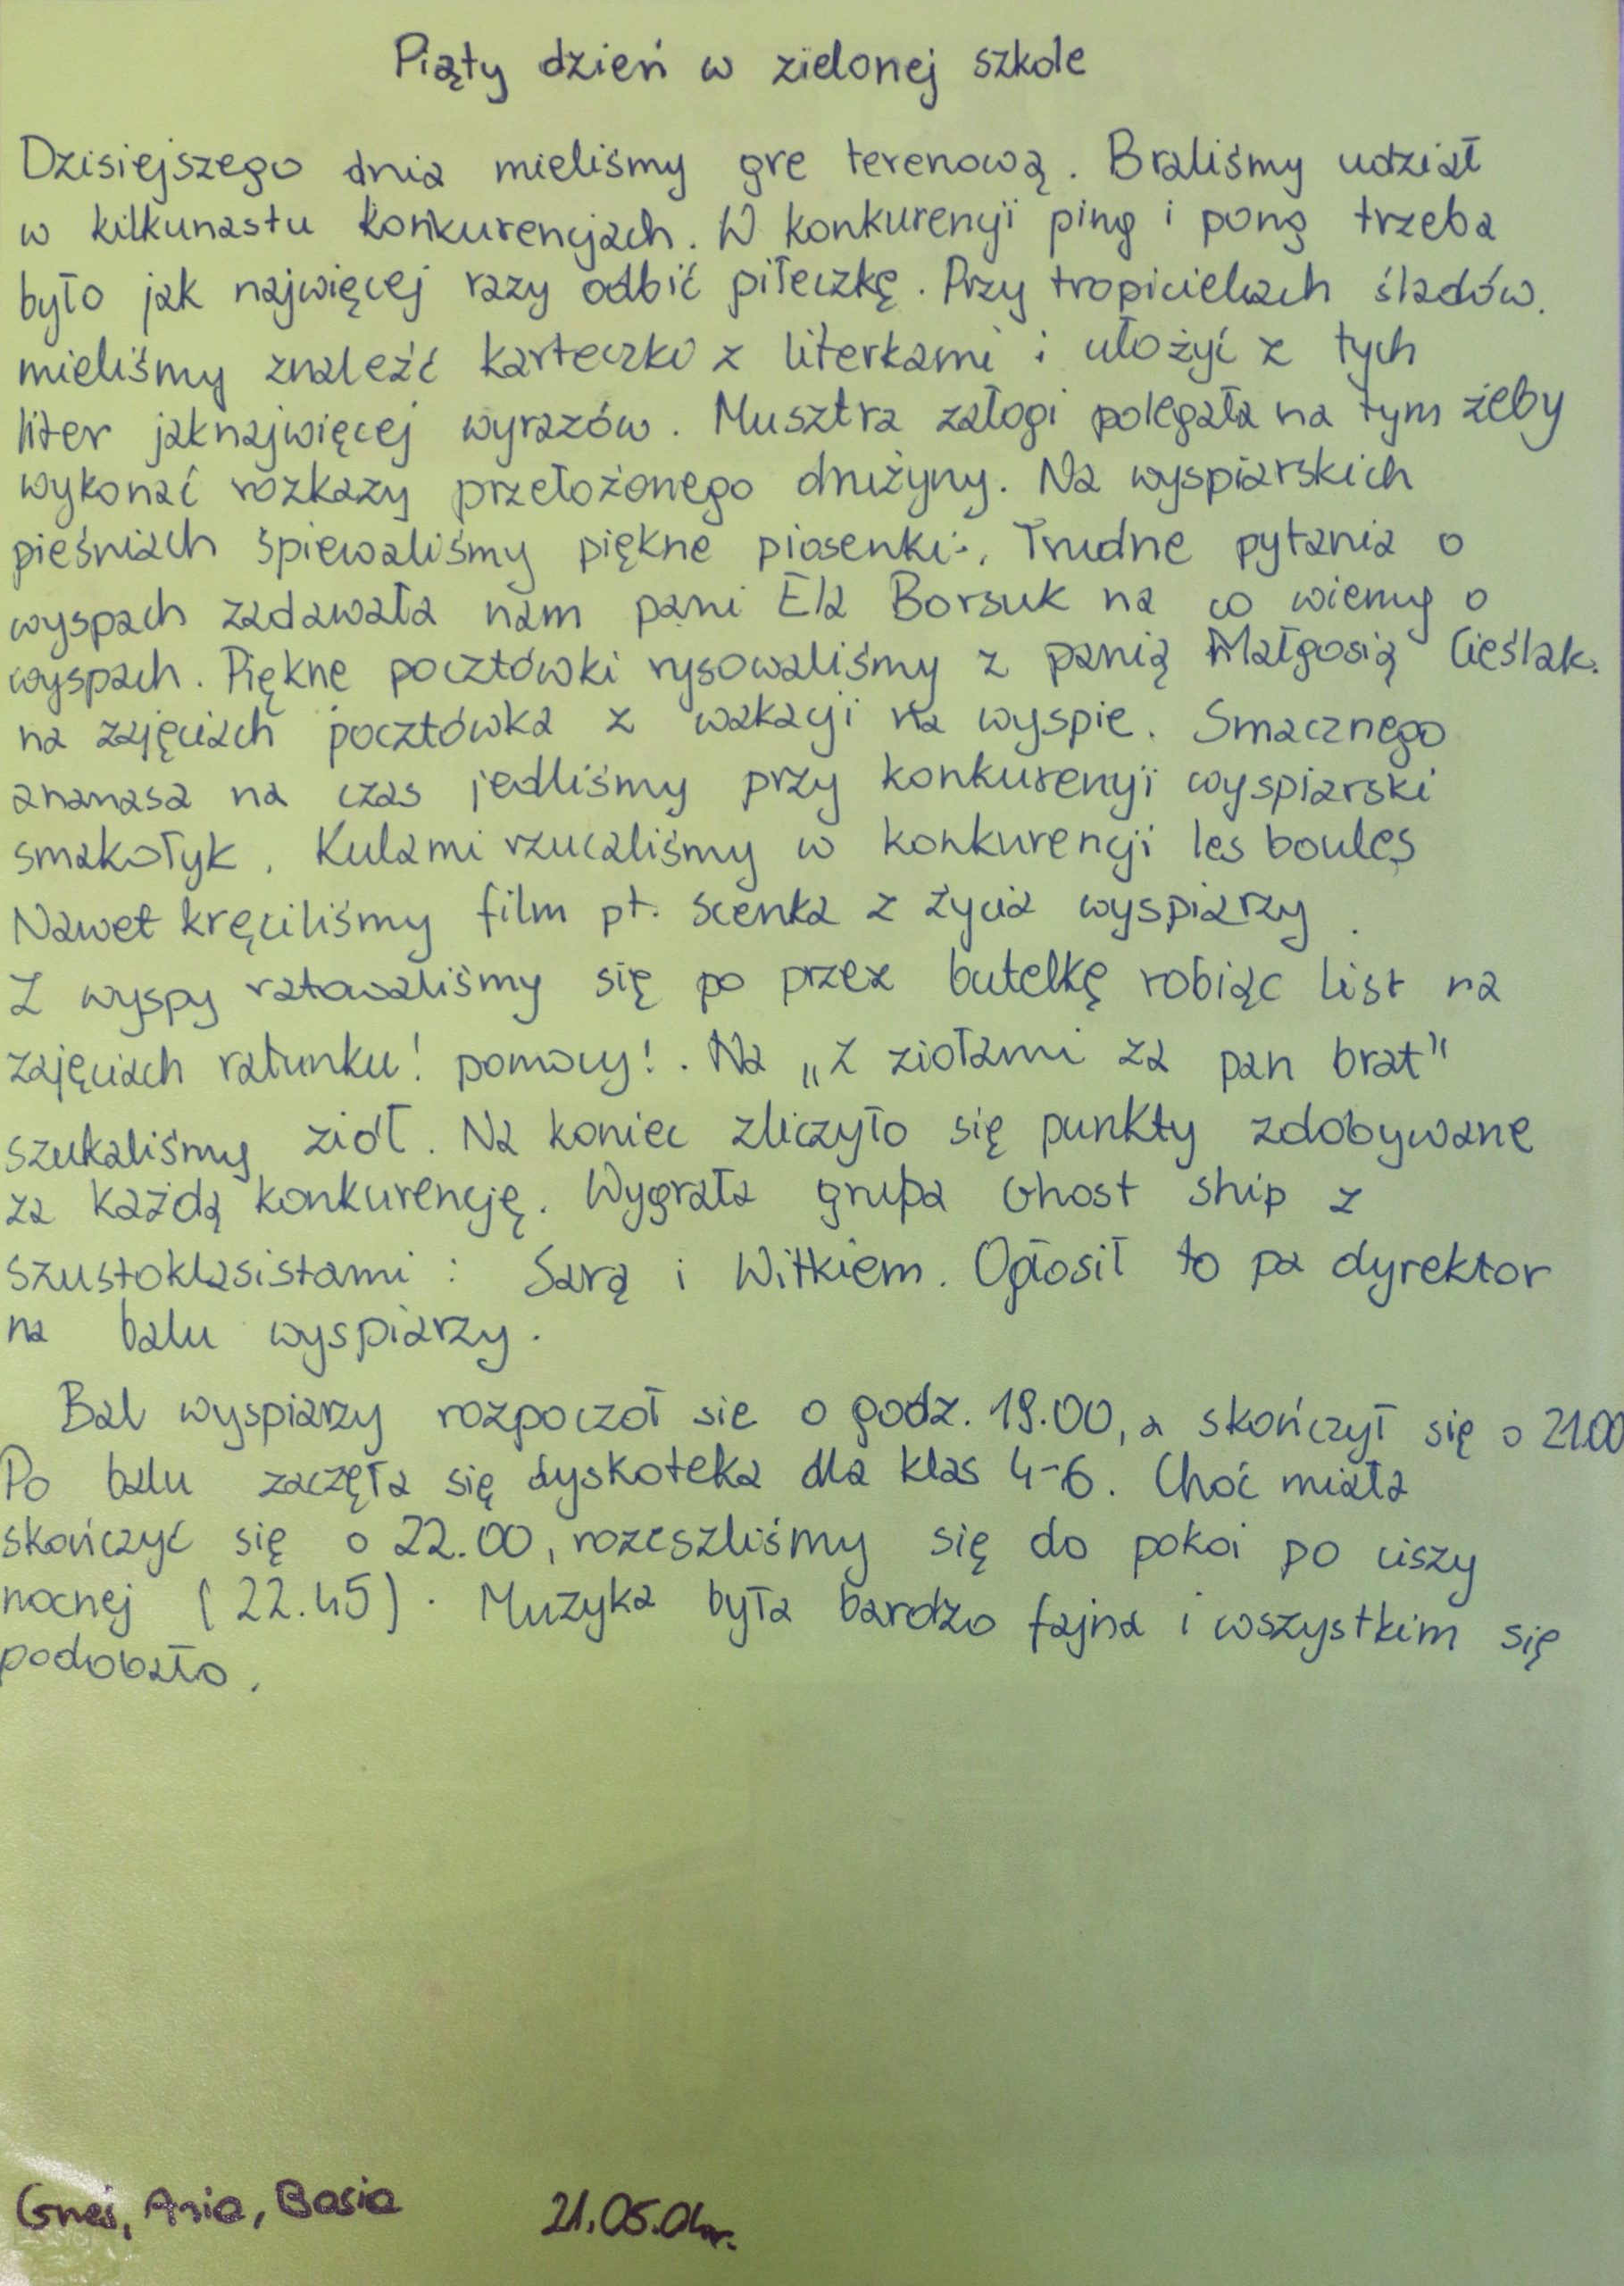 Piąty dzień w zielonej szkole
Dzisiejszego dnia mieliśmy gre terenową. Braliśmy udział
w kilkunastu konkurencjach. W konkurencji ping i pong trzeba
było jak najwięcej razy odbić piłeczkę. Przy tropicielach śladów.
mieliśmy znaleźć karteczki z literkami i ułożyć z tych
liter jaknajwięcej wyrazów. Musztra załogi polegała na tym żeby
wykonać rozkazy przełożonego drużyny. Na wyspiarskich
pieśniach śpiewaliśmy piękne piosenki. Trudne pytania o
wyspach zadawała nam pani Ela Borsuk na co wiemy o
wyspach. Piękne pocztówki rysowaliśmy z panią Małgosią Cieślak.
na zajęciach pocztówka z wakacji na wyspie. Smacznego
ananasa na czas jedliśmy przy konkurencji wyspiarski
smakołyk. Kulami rzucaliśmy w konkurencji les boules
Nawet kręciliśmy film pt. scenka z życia wyspiarzy.
Z wyspy ratowaliśmy się po przez butelkę robiąc list na
zajęciach ratunku! pomocy!. Na „Z ziołami za pan brat”
szukaliśmy ziół. Na koniec zliczyło się punkty zdobywane
za każdą konkurencję. Wygrała grupa Ghost ship z
szustoklasistami: Sarą i Witkiem. Ogłosił to pa dyrektor
na balu wyspiarzy.
Bal wyspiarzy rozpoczoł sie o godz. 19.00, a skończył się o 21.00
Po balu zaczęła się dyskoteka dla klas 4-6. Choć miała
skończyć się o 22.00, rozeszliśmy się do pokoi po ciszy
nocnej (22.45). Muzyka była bardzo fajna i wszystkim się
podobało.
Ania, Basia 21.05.04r.